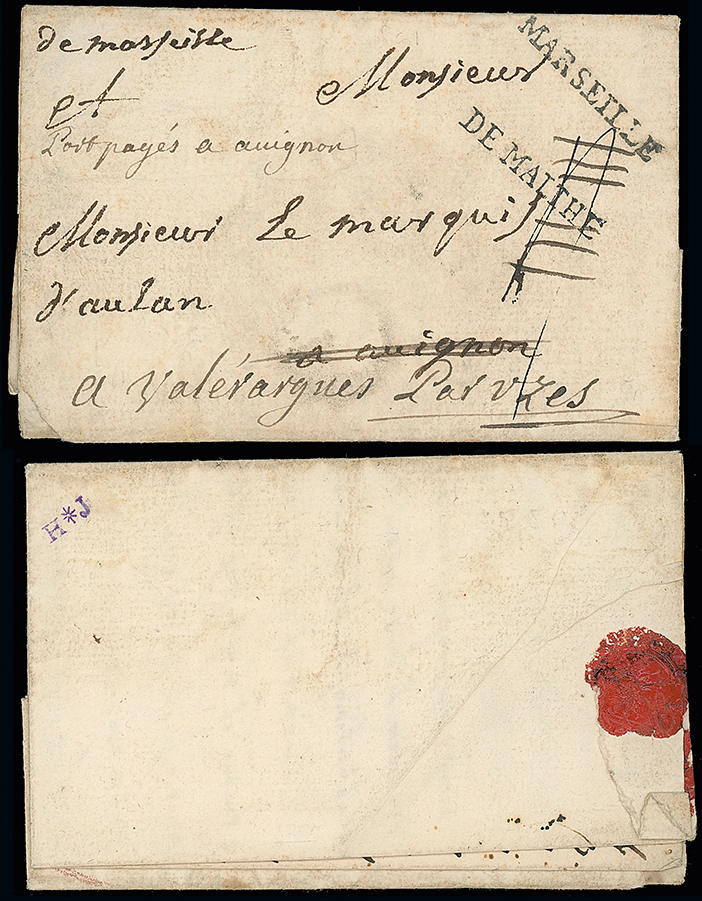 de marseille
MARSEILLE
Monsieur
et
DE MALTHE
Port payés a avignon
Monsieur Le marquis
d'aulan
a avignon
a Valérargues Par Uzes
H*J